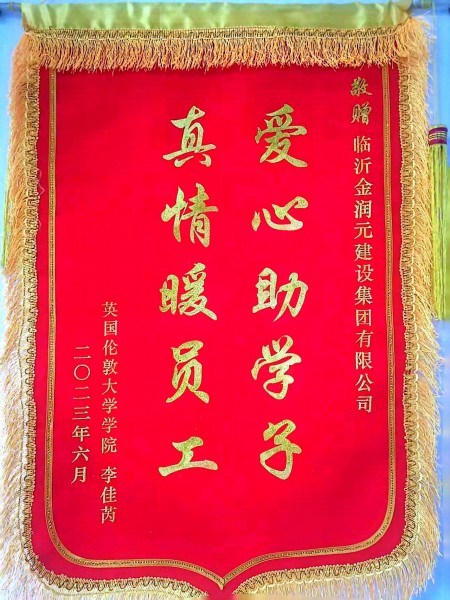 敬赠 临沂金润元建设集团有限公司
爱心助学子
真情暖员工
英国伦敦大学学院 李佳芮
二〇二三年六月